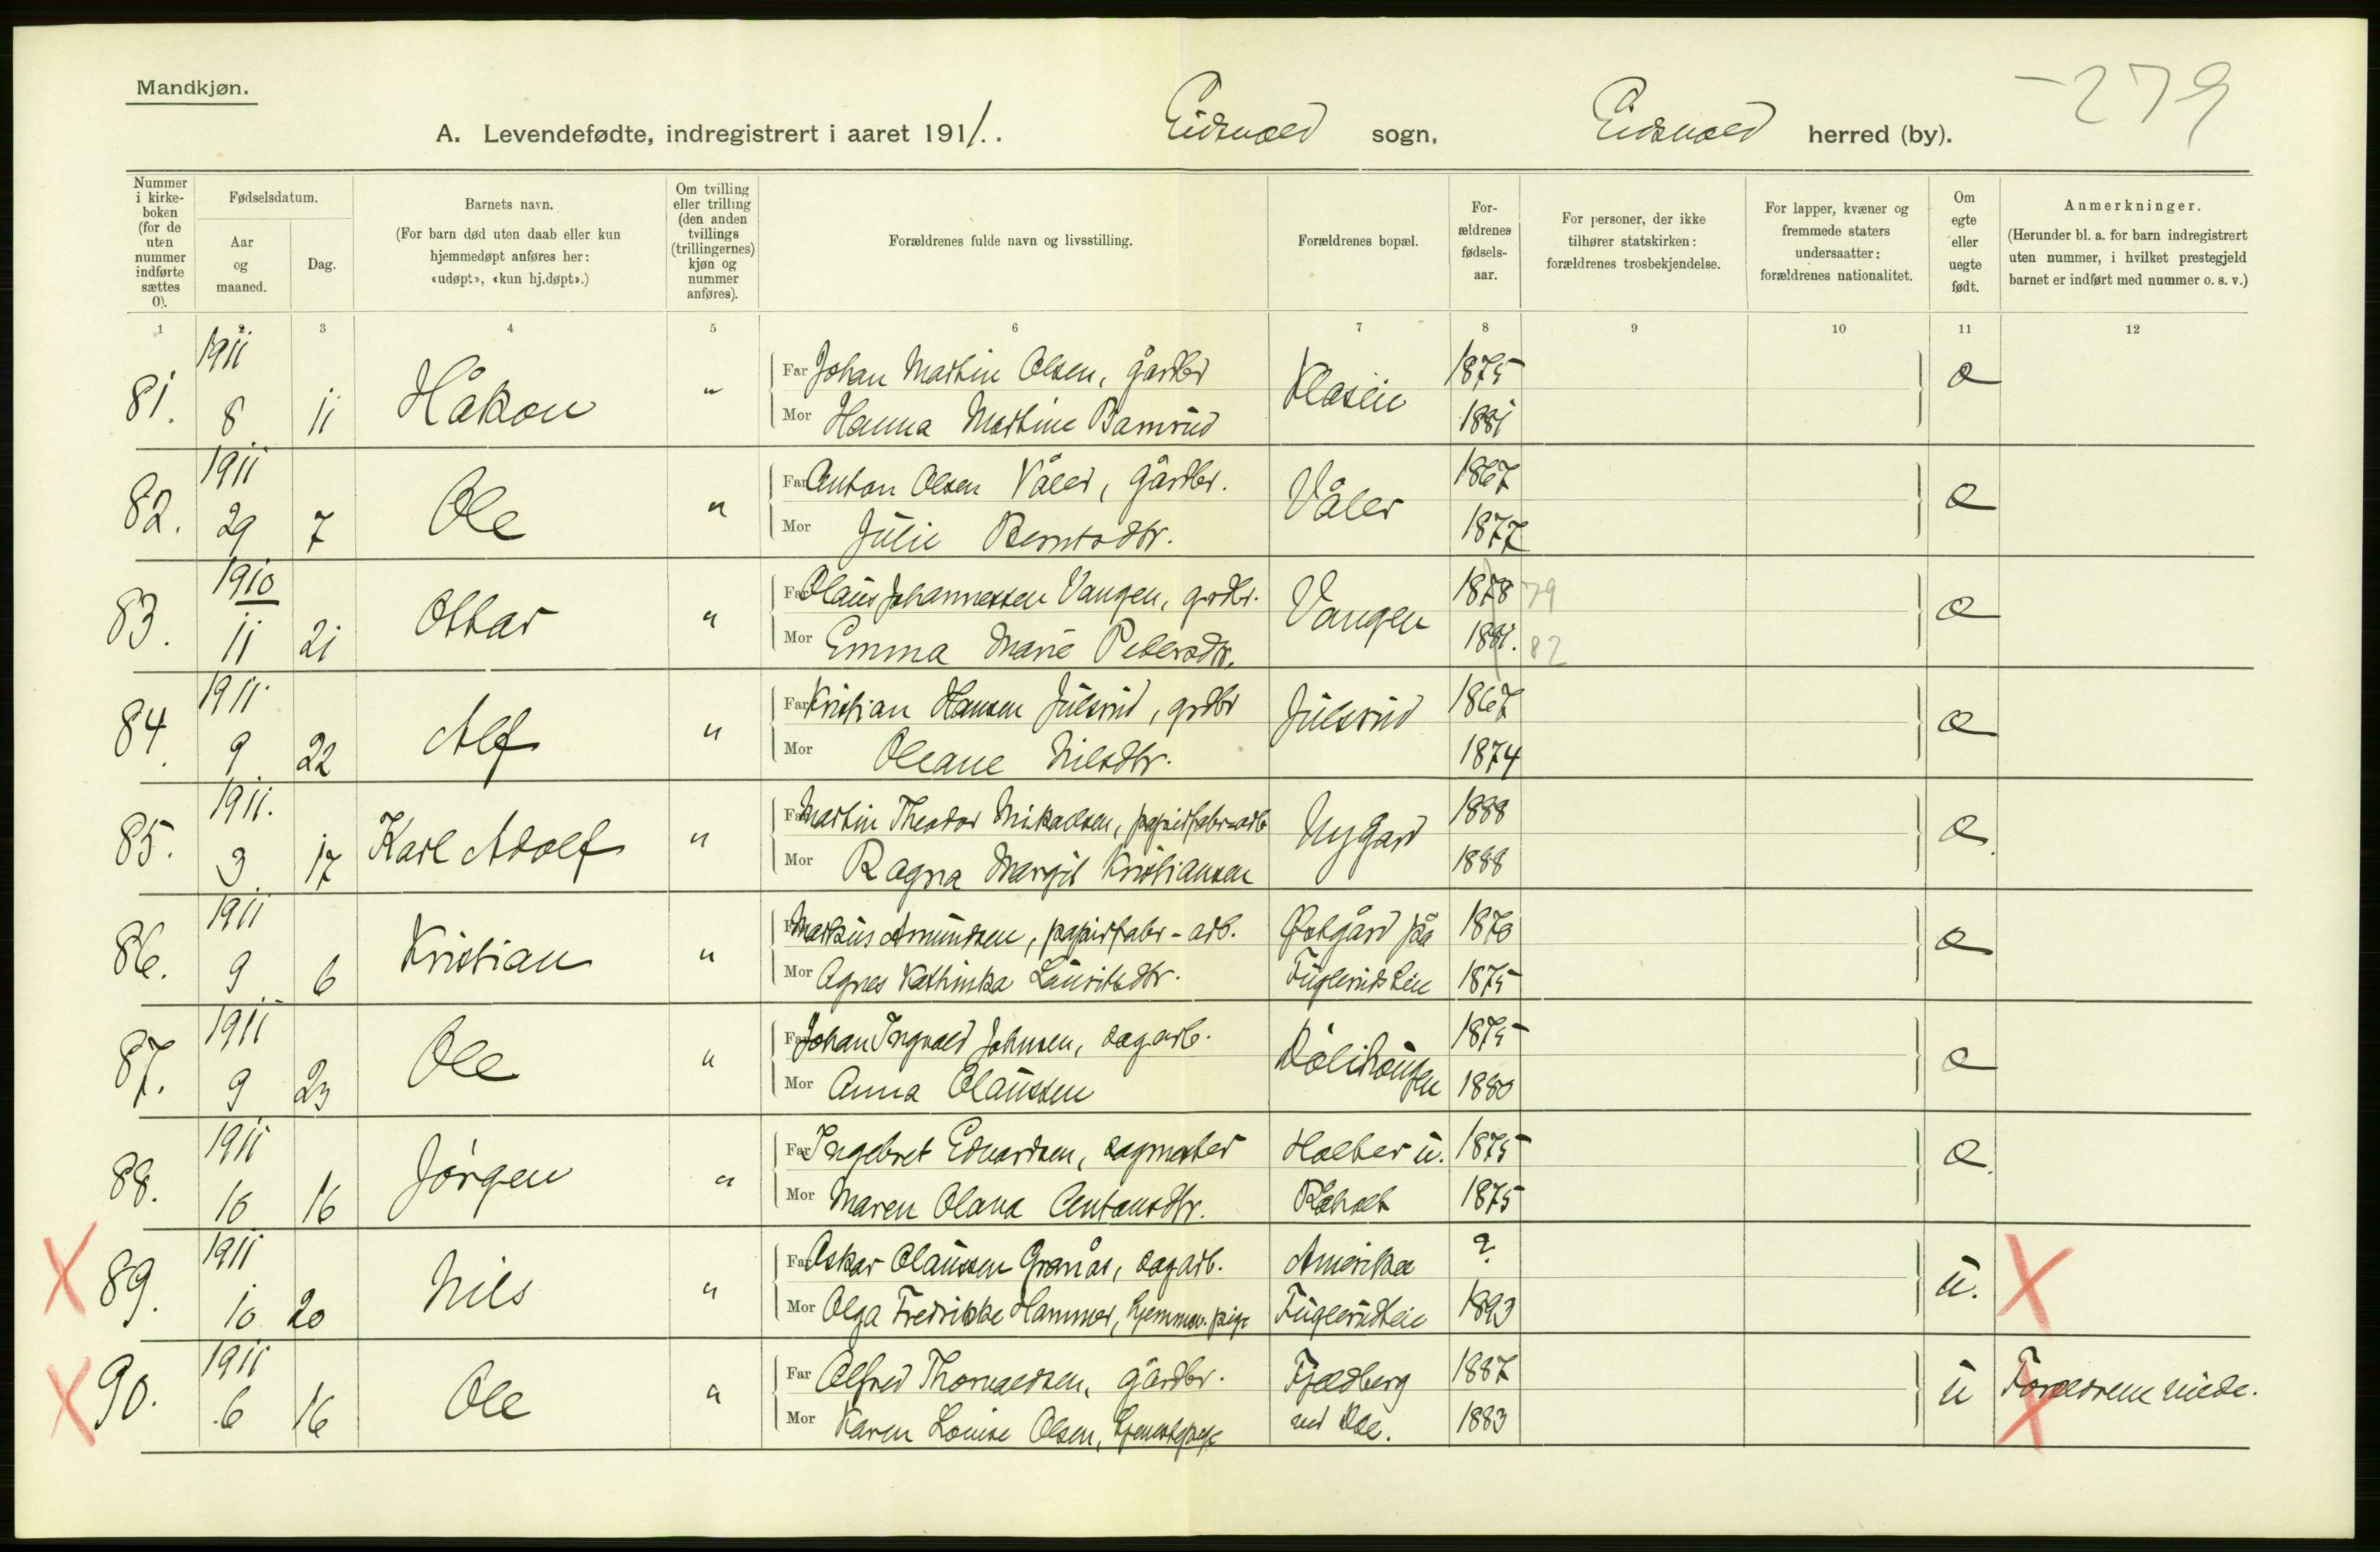 Mandkjøn.
-279
A. Levendefødte, indregistrert i aaret 1911. Eidsvold sogn, Eidsvold herred (by).
Nummer i kirkeboken (for de uten nummer indførte sættes 0).
Fødselsdatum.
Aar og maaned.
Dag.
Barnets navn.
(For barn død uten daab eller kun hjemmedøpt anføres her: «udøpt», «kun hj.døpt».)
Om tvilling eller trilling (den anden tvillings (trillingernes) kjøn og nummer anføres).
Forældrenes fulde navn og livsstilling.
Forældrenes bopæl.
Forældrenes fødselsaar.
For personer, der ikke tilhører statskirken: forældrenes trosbekjendelse.
For lapper, kvæner og fremmede staters undersaatter: forældrenes nationalitet.
Om egte eller uegte født.
Anmerkninger.
(Herunder bl. a. for barn indregistrert uten nummer, i hvilket prestegjeld barnet er indført med nummer o. s. v.)
1 2 3 4 5 6 7 8 9 10 11 12
81. 1911 8 11 Håkon " Far Johan Martin Olsen, gårdbr 1875 e
Mor Hanna Martine Bamrud 1881
82. 1911 29 7 Ole " Far Anton Olsen Våler, gårdbr. Våler 1867 e
Mor Julie Berntsdtr. 1877
83. 1910 11 21 Ottar " Far Olaus Johannessen Vangen, grdbr. Vangen 1878 79 e
Mor Emma Marie Petersdtr. 1881. 82
84. 1911 9 22 Alf " Far Kristian Hansen Julsrud, grdbr Julsrud 1867 e
Mor Oleane Nilsdtr. 1874
85. 1911. 9 17 Karl Adolf " Far Martin Theodor Mikaelsen, papirfabr-arb Nygard 1888 e.
Mor Ragna Margit Kristiansen 1888
86. 1911 9 6 Kristian " Far Markus Amundsen, papirfabr-arb. Østgård på 1870 e
Mor Agnes Kathinka Lauritsdtr. Fuglerudseie 1875
87. 1911 9 23 Ole " Far Johan Ingvald Johnsen, sagarb. Dølihaugen 1875 e
Mor Anna Olaussen 1880
88. 1911 10 16 Jørgen " Far Ingebret Edvardsen, sagmester Holter u. 1875 e.
Mor Maren Olava Antonsdtr. Råholt 1875
89. 1911 10 20 Nils " Far Oskar Olaussen Granås, sagarb. Amerika ? u.
Mor Olga Fredrikke Hammer, hjemmev. pige Fuglerudeie 1893
90. 1911 6 16 Ole " Far Alfred Thorvaldsen, gårdbr. Fjeldberg 1887 u Forældrene viede.
Mor Karen Louise Olsen, tjenestepige ved Dal. 1883